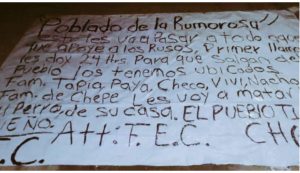 Poblado de la Rumorosa"
Esto les va a Pasar a todo aquel
que apoye a los Rusos, Primer llama
les doy 24 Hrs. Para que Salgan del
Pueblo los tenemos ubicados
Fam. Tapia, Paya, Checo, Vivi, Nacho
Fam. de Chepe Les voy a matar
al Perro de su casa. EL PUEBLO TI
EÑO. Att: F.E.C. CHO
F.E.C.